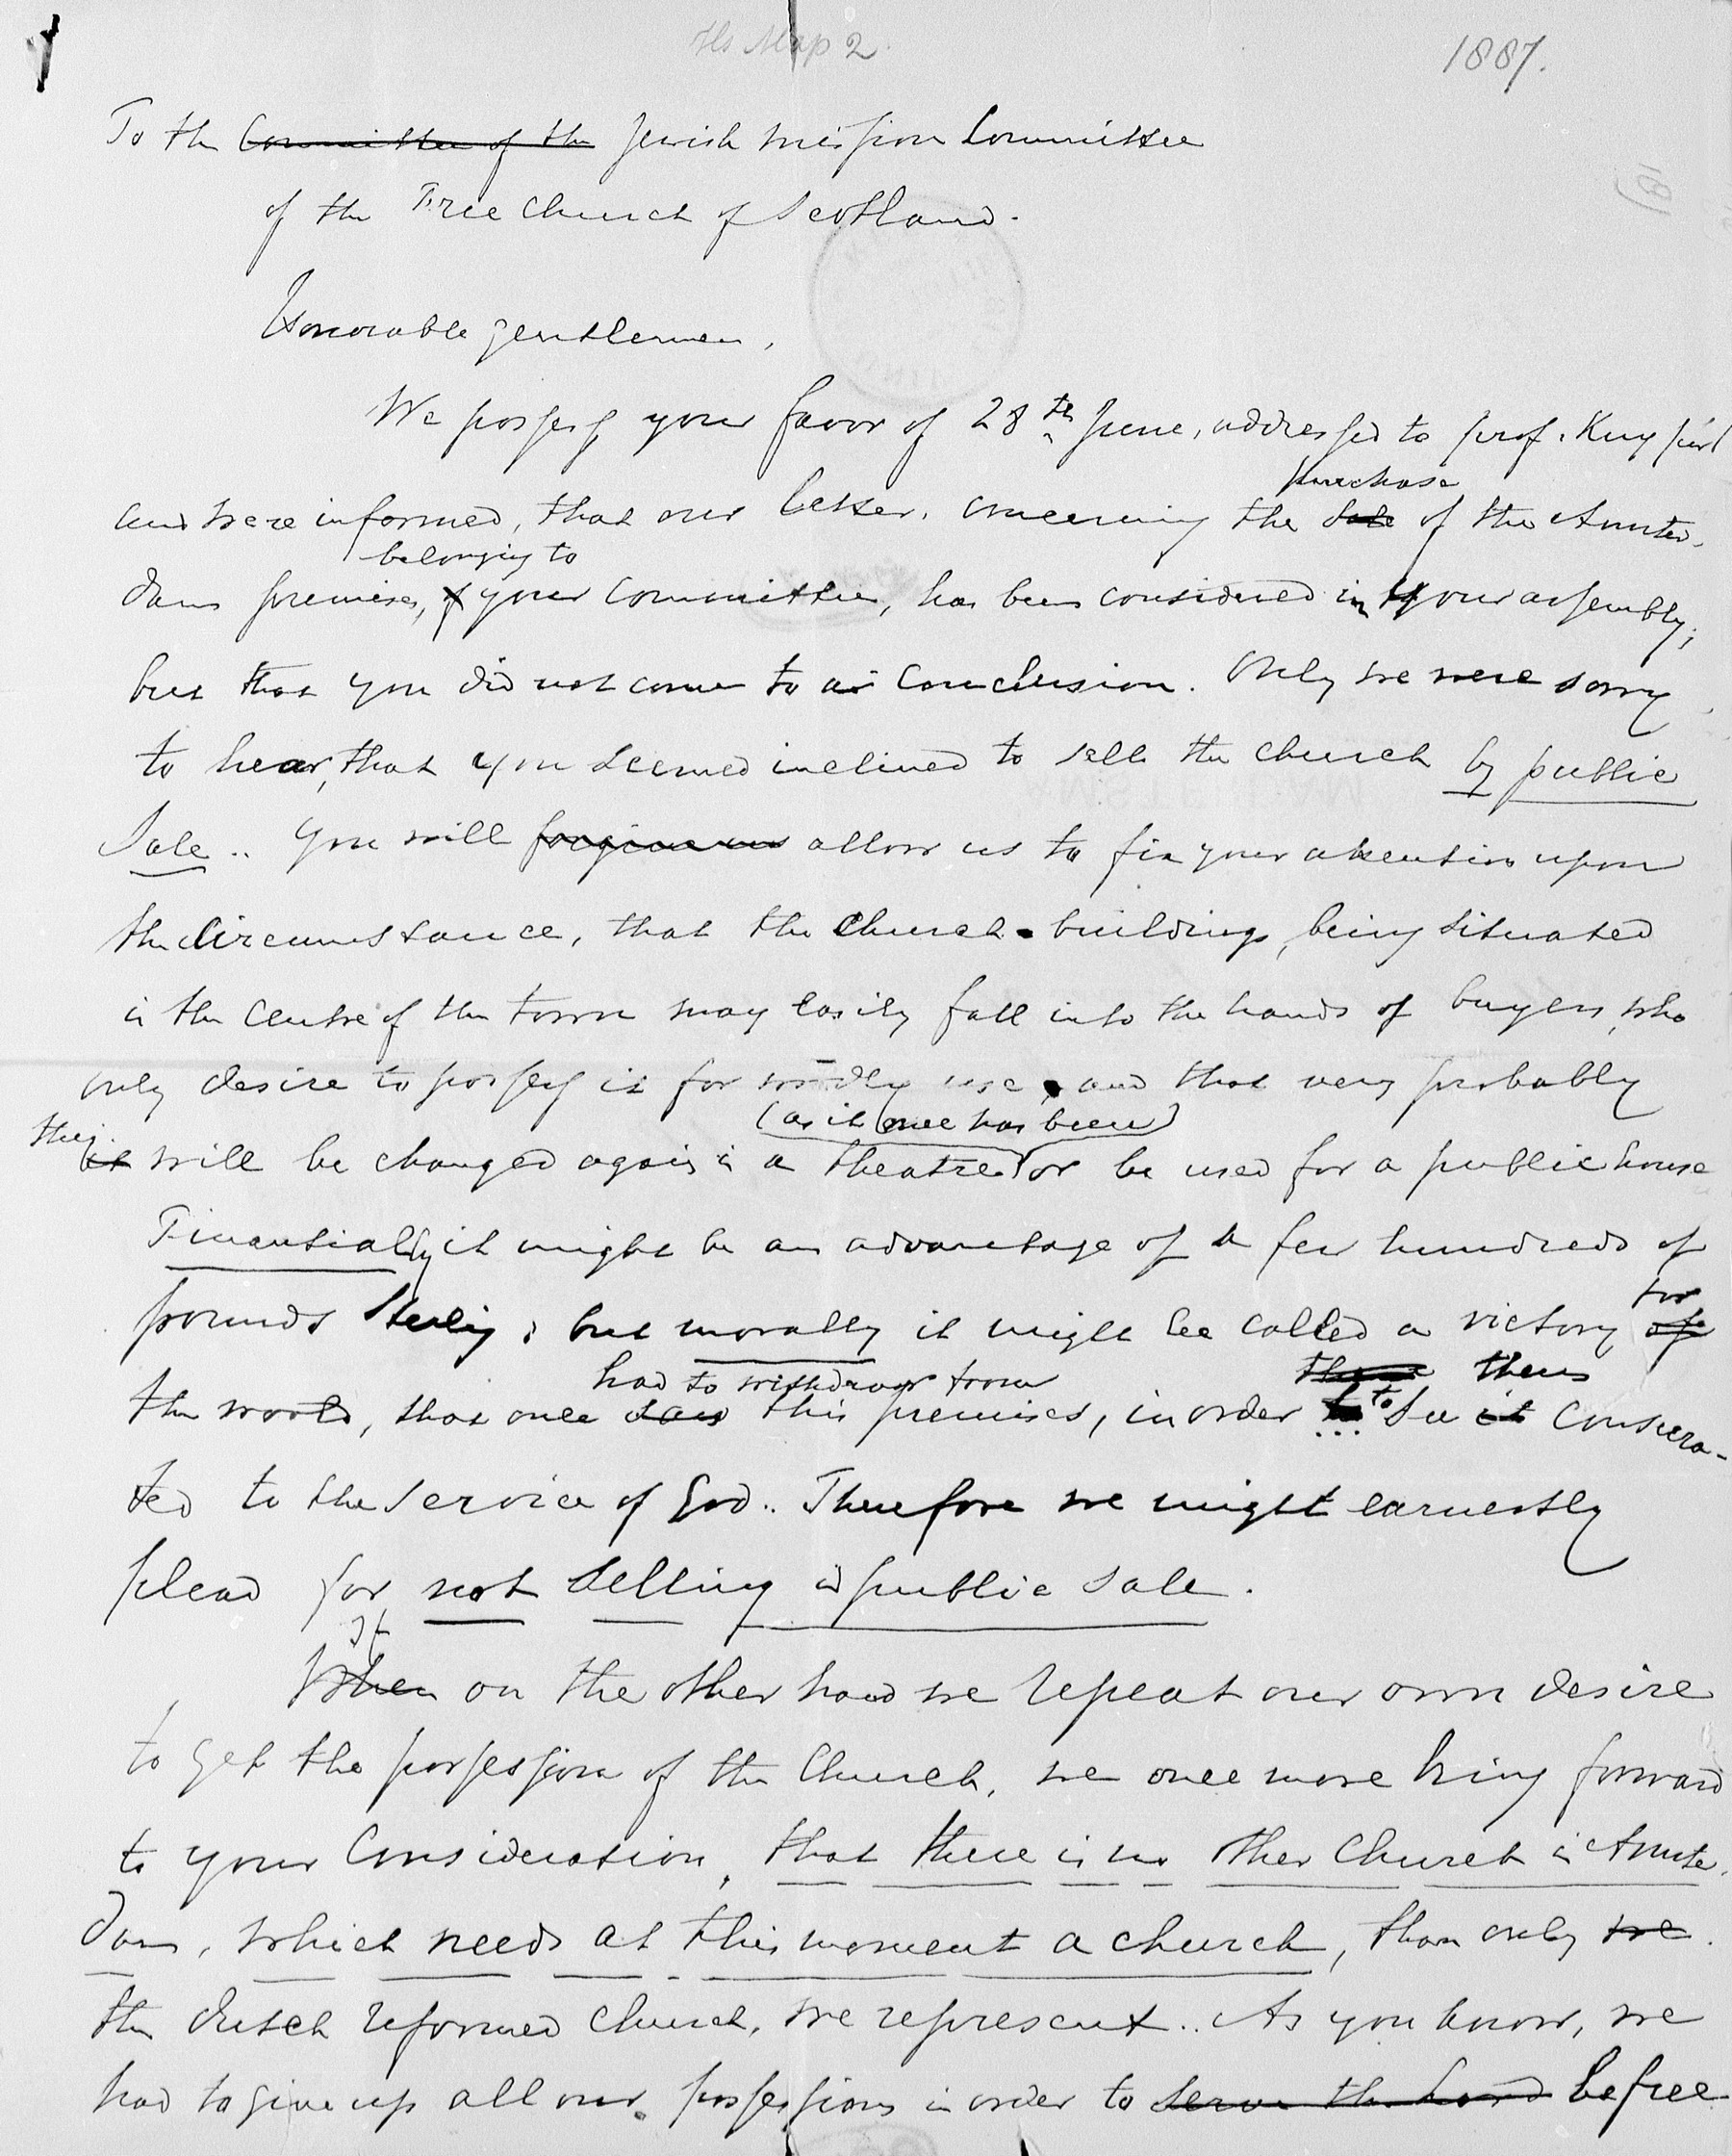 Hs Map 2.
1887.
To the Committee of the Jewish mission Committee
of the Free Church of Scotland.
Honorable gentlemen,
We possess your favor of 28th June, addressed to prof. Kuyper
purchase
and were informed, that our letter, concerning the Sale of the Amster-
belonging to
dam premises, of your Committee, has been considered in your assembly;
but that you did not come to a conclusion. Only we were sorry
to hear, that you seemed inclined to sell the church by public
Sale. You will forgive us allow us to fix your attention upon
the Circumstance, that the Church-buildings, being situated
in the Centre of the town may easily fall into the hands of buyers, who
only desire to possess it for wordly use, and that very probably
(as it once has been)
they it will be changed again in a theatre or be used for a public house
Finantially it might be an advantage of a few hundreds of
for
pounds Sterling; but morally it might be called a victory of
had to withdraw from these them
the world, that once saw this premises, in order to see it Consecra-
ted to the Service of God. Therefore we might earnestly
plead for not Selling in public sale.
If
When on the other hand we repeat our own desire
to get the possession of the Church, we once more bring forward
to your Consideration, that there is no other Church in Amster-
dam, which needs at this moment a church, than only we
the dutch reformed church, we represent. As you know, we
had to give up all our possessions in order to serve the Lord be free